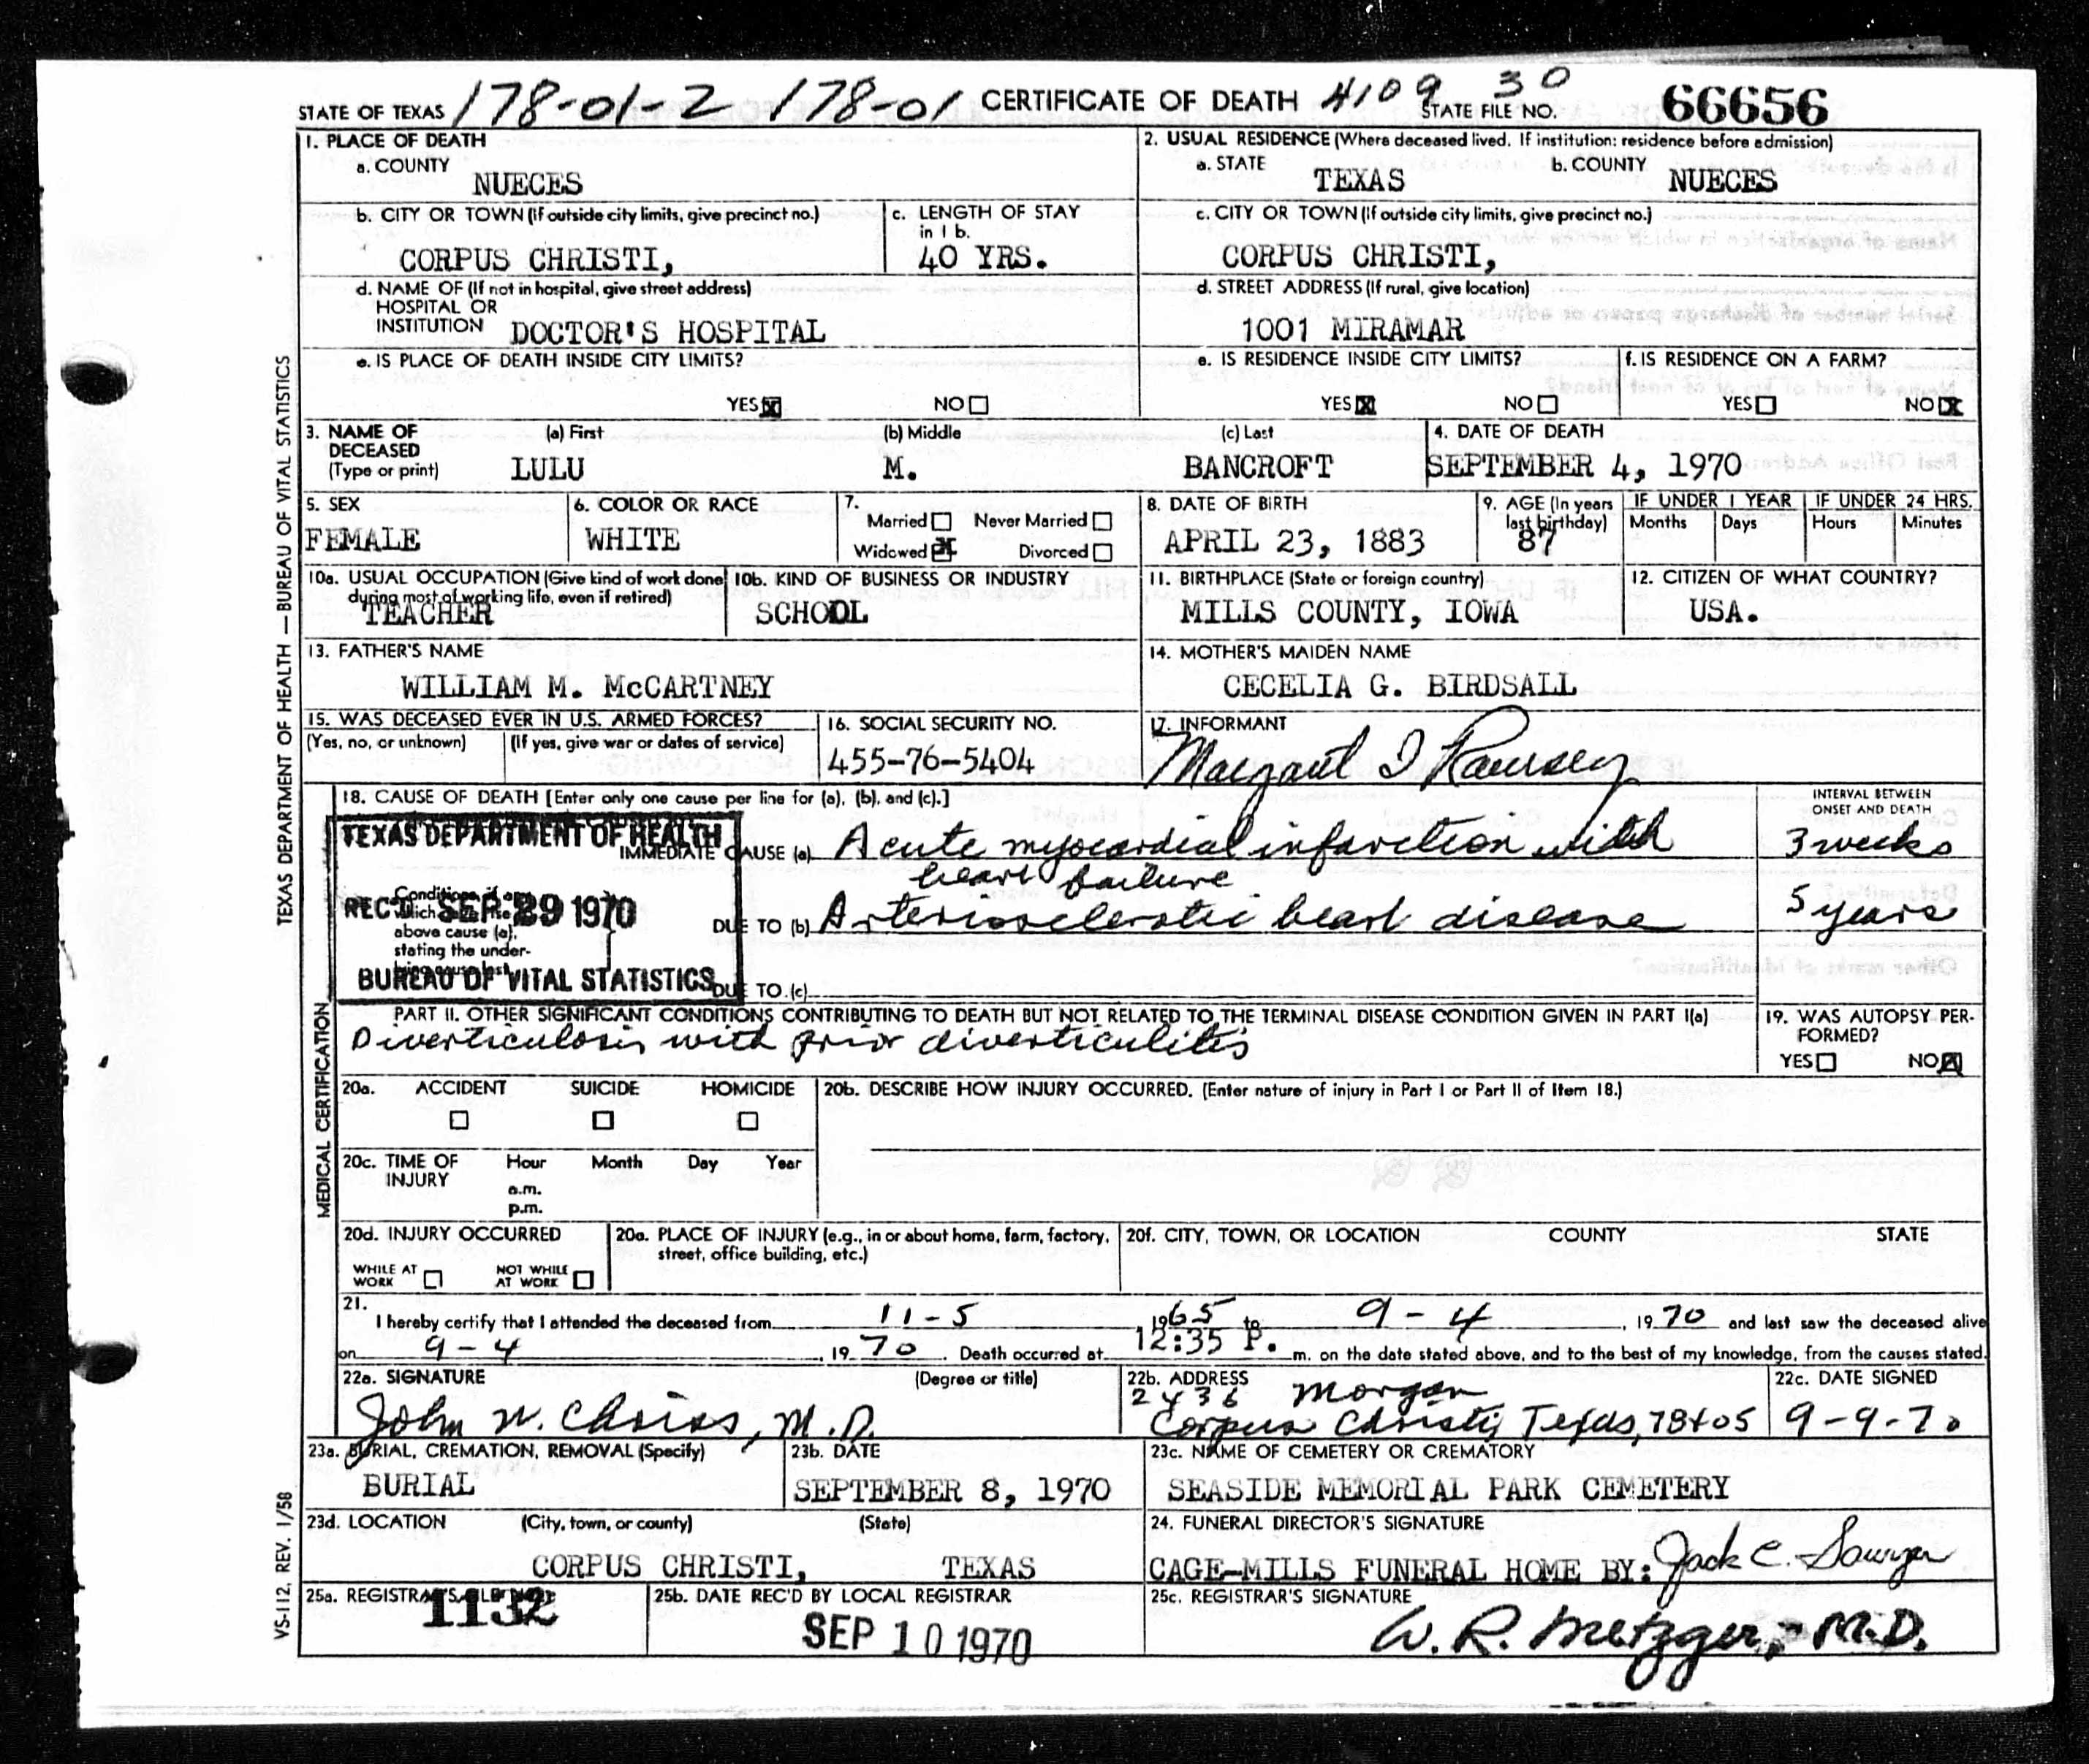 STATE OF TEXAS 178-01-2 178-01 CERTIFICATE OF DEATH 4109 30 STATE FILE NO. 66656
1. PLACE OF DEATH
a. COUNTY
NUECES
2. USUAL RESIDENCE (Where deceased lived. If institution: residence before admission)
a. STATE b. COUNTY
TEXAS NUECES
b. CITY OR TOWN (if outside city limits, give precinct no.)
CORPUS CHRISTI,
c. LENGTH OF STAY
in 1 b.
40 YRS.
c. CITY OR TOWN (If outside city limits, give precinct no.)
CORPUS CHRISTI,
d. NAME OF (If not in hospital, give street address)
HOSPITAL OR
INSTITUTION DOCTOR'S HOSPITAL
d. STREET ADDRESS (If rural, give location)
1001 MIRAMAR
e. IS PLACE OF DEATH INSIDE CITY LIMITS?
YES X NO
e. IS RESIDENCE INSIDE CITY LIMITS?
YES X NO
f. IS RESIDENCE ON A FARM?
YES NO X
3. NAME OF
DECEASED
(Type or print)
(a) First (b) Middle (c) Last
LULU M. BANCROFT
4. DATE OF DEATH
SEPTEMBER 4, 1970
5. SEX
FEMALE
6. COLOR OR RACE
WHITE
7.
Married Never Married
Widowed X Divorced
8. DATE OF BIRTH
APRIL 23, 1883
9. AGE (In years
last birthday)
87
IF UNDER 1 YEAR
Months Days
IF UNDER 24 HRS.
Hours Minutes
10a. USUAL OCCUPATION (Give kind of work done
during most of working life, even if retired)
TEACHER
10b. KIND OF BUSINESS OR INDUSTRY
SCHOOL
11. BIRTHPLACE (State or foreign country)
MILLS COUNTY, IOWA
12. CITIZEN OF WHAT COUNTRY?
USA.
13. FATHER'S NAME
WILLIAM M. McCARTNEY
14. MOTHER'S MAIDEN NAME
CECELIA G. BIRDSALL
15. WAS DECEASED EVER IN U.S. ARMED FORCES?
(Yes, no, or unknown) (If yes, give war or dates of service)
16. SOCIAL SECURITY NO.
455-76-5404
17. INFORMANT
Margaret I Ramsey
18. CAUSE OF DEATH [Enter only one cause per line for (a), (b), and (c).]
INTERVAL BETWEEN
ONSET AND DEATH
TEXAS DEPARTMENT OF HEALTH
REC'D SEP 29 1970
BUREAU OF VITAL STATISTICS
IMMEDIATE CAUSE (a) Acute myocardial infarction with
heart failure
3 weeks
above cause (a),
stating the under-
DUE TO (b) Arteriosclerotic heart disease
5 years
DUE TO (c)
PART II. OTHER SIGNIFICANT CONDITIONS CONTRIBUTING TO DEATH BUT NOT RELATED TO THE TERMINAL DISEASE CONDITION GIVEN IN PART I(a)
Diverticulosis with prior diverticulitis
19. WAS AUTOPSY PER-
FORMED?
YES NO X
20a. ACCIDENT SUICIDE HOMICIDE
20b. DESCRIBE HOW INJURY OCCURRED. (Enter nature of injury in Part I or Part II of Item 18.)
20c. TIME OF
INJURY
Hour Month Day Year
a.m.
p.m.
20d. INJURY OCCURRED
WHILE AT
WORK
NOT WHILE
AT WORK
20e. PLACE OF INJURY (e.g., in or about home, farm, factory,
street, office building, etc.)
20f. CITY, TOWN, OR LOCATION COUNTY STATE
21.
I hereby certify that I attended the deceased from 11-5, 1965 to 9-4, 1970 and last saw the deceased alive
on 9-4, 1970. Death occurred at 12:35 P. m. on the date stated above, and to the best of my knowledge, from the causes stated.
22a. SIGNATURE (Degree or title)
John W. Chriss, M.D.
22b. ADDRESS
2436 Morgan
Corpus Christi, Texas, 78405
22c. DATE SIGNED
9-9-70
23a. BURIAL, CREMATION, REMOVAL (Specify)
BURIAL
23b. DATE
SEPTEMBER 8, 1970
23c. NAME OF CEMETERY OR CREMATORY
SEASIDE MEMORIAL PARK CEMETERY
23d. LOCATION (City, town, or county) (State)
CORPUS CHRISTI, TEXAS
24. FUNERAL DIRECTOR'S SIGNATURE
CAGE-MILLS FUNERAL HOME BY: Jack C. Sawyer
25a. REGISTRAR'S
1132
25b. DATE REC'D BY LOCAL REGISTRAR
SEP 10 1970
25c. REGISTRAR'S SIGNATURE
W. R. Metzger, M.D.
TEXAS DEPARTMENT OF HEALTH — BUREAU OF VITAL STATISTICS
MEDICAL CERTIFICATION
VS-112, REV. 1/58